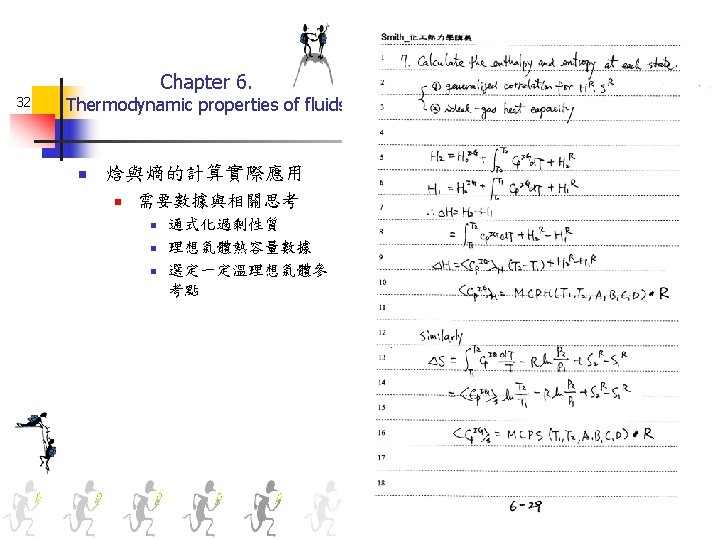 Chapter 6.
32
Thermodynamic properties of fluids
焓與熵的計算實際應用
需要數據與相關思考
通式化過剩性質
理想氣體熱容量數據
選定一定溫理想氣體參
考點
Smith_化工熱力學講義
1 7. Calculate the enthalpy and entropy at each state.
2 ① generalized correlation for H^R, S^R
3 ② ideal-gas heat capacity
4
5 H2 = H_0^{IG} + ∫_{T_0}^{T_2} Cp^{IG} dT + H_2^R
6 H1 = H_0^{IG} + ∫_{T_0}^{T_1} Cp^{IG} dT + H_1^R
7 ∴ΔH = H2 - H1
8 = ∫_{T_1}^{T_2} Cp^{IG} dT + H_2^R - H_1^R
9 ΔH = <Cp^{IG}>_H (T2-T1) + H_2^R - H_1^R
10 <Cp^{IG}>_H = MCPH(T1,T2,A,B,C,D) * R
11
12 Similarly
13 ΔS = ∫_{T_1}^{T_2} Cp^{IG} dT/T - R ln P2/P1 + S_2^R - S_1^R
14
15 = <Cp^{IG}>_S ln T2/T1 - R ln P2/P1 + S_2^R - S_1^R
16 <Cp^{IG}>_S = MCPS(T1,T2,A,B,C,D) * R
17
18
6-29